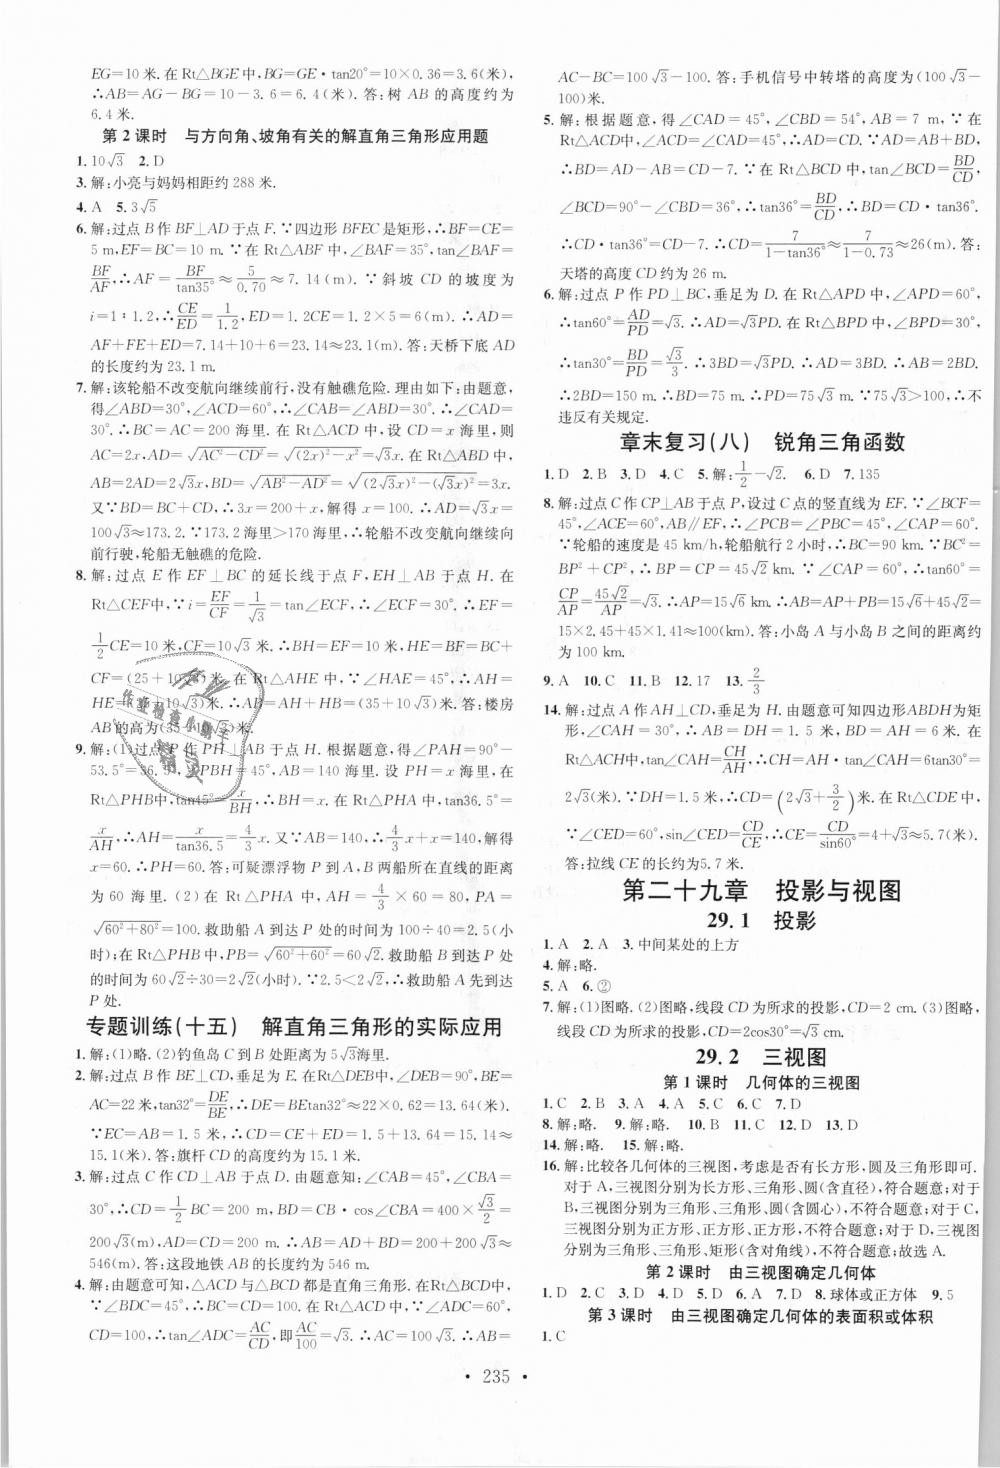 EG=10米.在Rt△BGE中,BG=GE·tan20°=10×0.36=3.6(米),
∴AB=AG-BG=10-3.6=6.4(米).答:树AB的高度约为
6.4米.
第2课时 与方向角、坡角有关的解直角三角形应用题
1.10√3 2.D
3.解:小亮与妈妈相距约288米.
4.A 5.3√5
6.解:过点B作BF⊥AD于点F.∵四边形BFEC是矩形,∴BF=CE=
5 m,EF=BC=10 m.在Rt△ABF中,∠BAF=35°,tan∠BAF=
BF/AF,∴AF=BF/tan35°≈5/0.70≈7.14(m).∵斜坡CD的坡度为
i=1:1.2,∴CE/ED=1/1.2,ED=1.2CE=1.2×5=6(m).∴AD=
AF+FE+ED=7.14+10+6=23.14≈23.1(m).答:天桥下底AD
的长度约为23.1 m.
7.解:该轮船不改变航向继续前行,没有触礁危险.理由如下:由题意,
得∠ABD=30°,∠ACD=60°,∴∠CAB=∠ABD=30°,∴∠CAD=
30°.∴BC=AC=200海里.在Rt△ACD中,设CD=x海里,则
AC=2x,AD=√(AC²-CD²)=√((2x)²-x²)=√3x.在Rt△ABD中,
AB=2AD=2√3x,BD=√(AB²-AD²)=√((2√3x)²-(√3x)²)=3x.
又∵BD=BC+CD,∴3x=200+x,解得x=100.∴AD=√3x=
100√3≈173.2.∵173.2海里>170海里,∴轮船不改变航向继续向
前行驶,轮船无触礁的危险.
8.解:过点E作EF⊥BC的延长线于点F,EH⊥AB于点H.在
Rt△CEF中,∵i=EF/CF=1/√3=tan∠ECF,∴∠ECF=30°.∴EF=
1/2CE=10米,CF=10√3米.∴BH=EF=10米,HE=BF=BC+
CF=(25+10√3)米.在Rt△AHE中,∵∠HAE=45°,∴AH=
HE=(25+10√3)米.∴AB=AH+HB=(35+10√3)米.答:楼房
AB的高为(35+10√3)米.
9.解:(1)过点P作PH⊥AB于点H.根据题意,得∠PAH=90°-
53.5°=36.5°,∠PBH=45°,AB=140海里.设PH=x海里,在
Rt△PHB中,tan45°=x/BH,∴BH=x.在Rt△PHA中,tan36.5°=
x/AH,∴AH=x/tan36.5°=4/3x.又∵AB=140,∴4/3x+x=140,解得
x=60.∴PH=60.答:可疑漂浮物P到A,B两船所在直线的距离
为60海里.(2)在Rt△PHA中,AH=4/3×60=80,PA=
√(60²+80²)=100.救助船A到达P处的时间为100÷40=2.5(小
时);在Rt△PHB中,PB=√(60²+60²)=60√2.救助船B到达P处
的时间为60√2÷30=2√2(小时).∵2.5<2√2,∴救助船A先到达
P处.
专题训练(十五) 解直角三角形的实际应用
1.解:(1)略.(2)钓鱼岛C到B处距离为50√3海里.
2.解:过点B作BE⊥CD,垂足为E.在Rt△DEB中,∠DEB=90°,BE=
AC=22米,tan32°=DE/BE,∴DE=BEtan32°≈22×0.62=13.64(米).
∵EC=AB=1.5米,∴CD=CE+ED=1.5+13.64=15.14≈
15.1(米).答:旗杆CD的高度约为15.1米.
3.解:过点C作CD⊥AB于点D.由题意知:∠CAB=45°,∠CBA=
30°,∴CD=1/2BC=200 m,BD=CB·cos∠CBA=400×√3/2=
200√3(m).∴AD=CD=200 m.∴AB=AD+BD=200+200√3≈
546(m).答:这段地铁AB的长度约为546 m.
4.解:由题意可知,△ACD与△BCD都是直角三角形.在Rt△BCD中,
∵∠BDC=45°,∴BC=CD=100.在Rt△ACD中,∵∠ADC=60°,
CD=100,∴tan∠ADC=AC/CD,即AC/100=√3.∴AC=100√3.∴AB=
AC-BC=100√3-100.答:手机信号中转塔的高度为(100√3-
100)米.
5.解:根据题意,得∠CAD=45°,∠CBD=54°,AB=7 m,∵在
Rt△ACD中,∠ACD=∠CAD=45°,∴AD=CD.∵AD=AB+BD,
∴BD=AD-AB=CD-7.∵在Rt△BCD中,tan∠BCD=BD/CD,
∠BCD=90°-∠CBD=36°,∴tan36°=BD/CD,∴BD=CD·tan36°.
∴CD·tan36°=CD-7.∴CD=7/(1-tan36°)≈7/(1-0.73)≈26(m).答:
天塔的高度CD约为26 m.
6.解:过点P作PD⊥BC,垂足为D.在Rt△APD中,∠APD=60°,
∴tan60°=AD/PD=√3.∴AD=√3PD.在Rt△BPD中,∠BPD=30°,
∴tan30°=BD/PD=√3/3.∴3BD=√3PD.∴AD=3BD.∴AB=2BD.
∴2BD=150 m.∴BD=75 m.∴PD=75√3 m.∵75√3>100,∴不
违反有关规定.
章末复习(八) 锐角三角函数
1.D 2.B 3.D 4.C 5.解:1/2-√2. 6.D 7.135
8.解:过点C作CP⊥AB于点P,设过C点的竖直线为EF.∵∠BCF=
45°,∠ACE=60°,AB∥EF,∴∠PCB=∠PBC=45°,∠CAP=60°.
∵轮船的速度是45 km/h,轮船航行2小时,∴BC=90 km.∵BC²=
BP²+CP²,∴BP=CP=45√2 km.∵∠CAP=60°,∴tan60°=
CP/AP=45√2/AP=√3.∴AP=15√6 km.∴AB=AP+PB=15√6+45√2=
15×2.45+45×1.41≈100(km).答:小岛A与小岛B之间的距离约
为100 km.
9.A 10.C 11.B 12.17 13.2/3
14.解:过点A作AH⊥CD,垂足为H.由题意可知四边形ABDH为矩
形,∠CAH=30°,∴AB=DH=1.5米,BD=AH=6米.在
Rt△ACH中,tan∠CAH=CH/AH,∴CH=AH·tan∠CAH=6tan30°=
2√3(米).∵DH=1.5米,∴CD=(2√3+3/2)米.在Rt△CDE中,
∵∠CED=60°,sin∠CED=CD/CE,∴CE=CD/sin60°=4+√3≈5.7(米).
答:拉线CE的长约为5.7米.
第二十九章 投影与视图
29.1 投影
1.A 2.A 3.中间某处的上方
4.解:略.
5.A 6.②
7.解:(1)图略.(2)图略,线段CD为所求的投影,CD=2 cm.(3)图
略,线段CD为所求的投影,CD=2cos30°=√3 cm.
29.2 三视图
第1课时 几何体的三视图
1.C 2.B 3.A 4.A 5.C 6.C 7.D
8.解:略. 9.解:略. 10.B 11.C 12.D 13.D
14.解:略. 15.解:略.
16.解:比较各几何体的三视图,考虑是否有长方形,圆及三角形即可.
对于A,三视图分别为长方形、三角形、圆(含直径),符合题意;对于
B,三视图分别为三角形、三角形、圆(含圆心),不符合题意;对于C,
三视图分别为正方形、正方形、正方形,不符合题意;对于D,三视图
分别为三角形、三角形、矩形(含对角线),不符合题意;故选A.
第2课时 由三视图确定几何体
1.D 2.C 3.A 4.B 5.D 6.B 7.B 8.球体或正方体 9.5
第3课时 由三视图确定几何体的表面积或体积
1.C
· 235 ·
作业
作业检查小助手
精灵